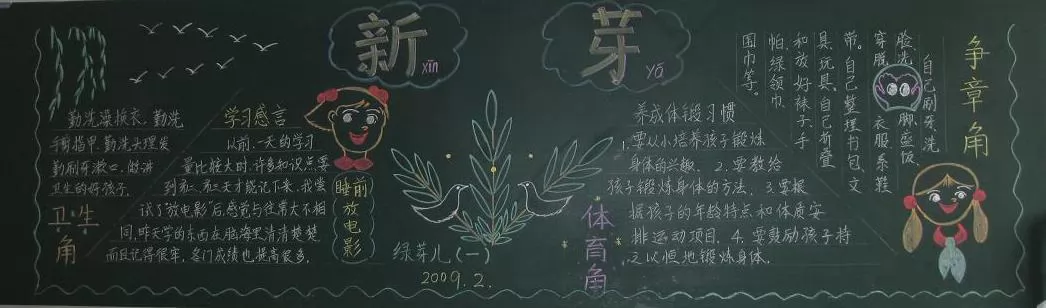 新 芽
xīn yá
勤洗澡换衣、勤洗
手剪指甲、勤洗头理发
勤刷牙漱口、做讲
卫生的好孩子。
卫生
角
学习感言
以前一天的学习
量比较大时,许多知识点要
到第二、第三天才能记下来,我尝
试了"放电影"后,感觉与往常大不相
同,昨天学的东西在脑海里清清楚楚
而且记得很牢,各门成绩也提高很多。
睡前
放
电
影
绿芽儿(一)
2009.2.
养成体锻习惯
1.要从小培养孩子锻炼
身体的兴趣。2.要教给
孩子锻炼身体的方法。3.要根
据孩子的年龄特点和体质安
排运动项目。4.要鼓励孩子持
之以恒地锻炼身体。
体
育
角
争章角
自己刷牙、洗
脸、洗脚、盛饭、
穿脱衣服、系鞋
带。自己整理书包、文
具、玩具、自己折叠
和放好袜子、手
帕、绿领巾、
围巾等。